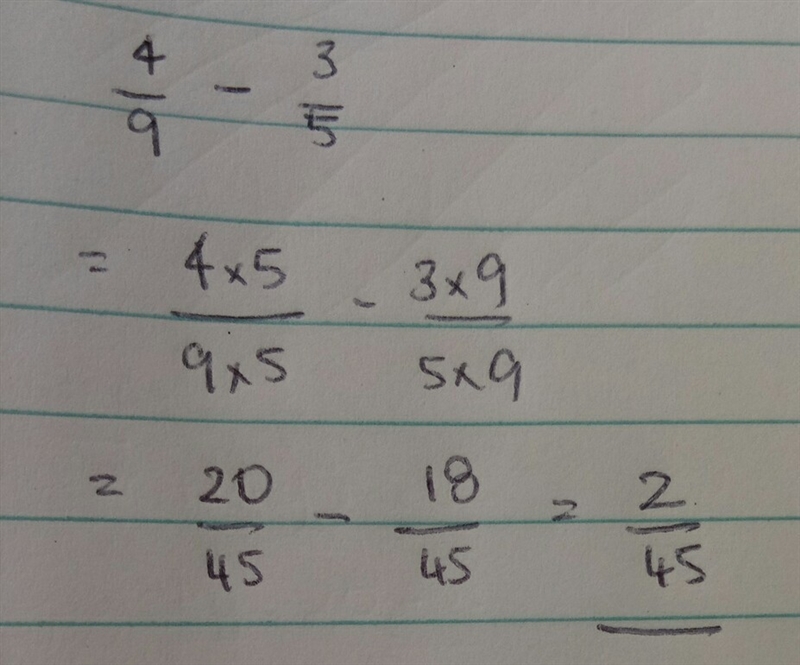 4/9 - 3/5
= 4×5/9×5 - 3×9/5×9
= 20/45 - 18/45 = 2/45